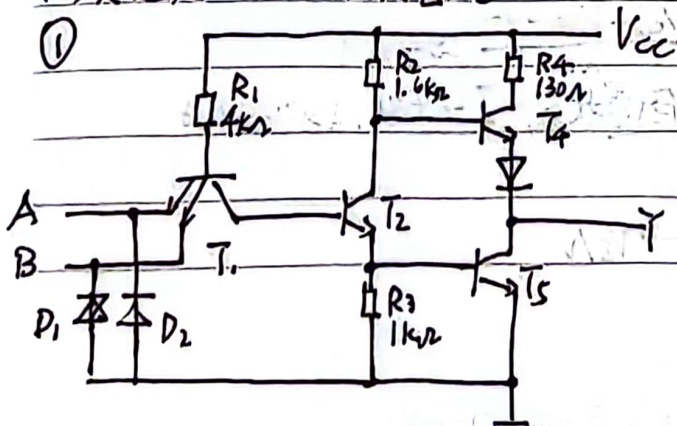 ①
Vcc
R1
4kΩ
R2
1.6kΩ
R4
130Ω
T4
A
T2
Y
B
T1
T5
D1
D2
R3
1kΩ